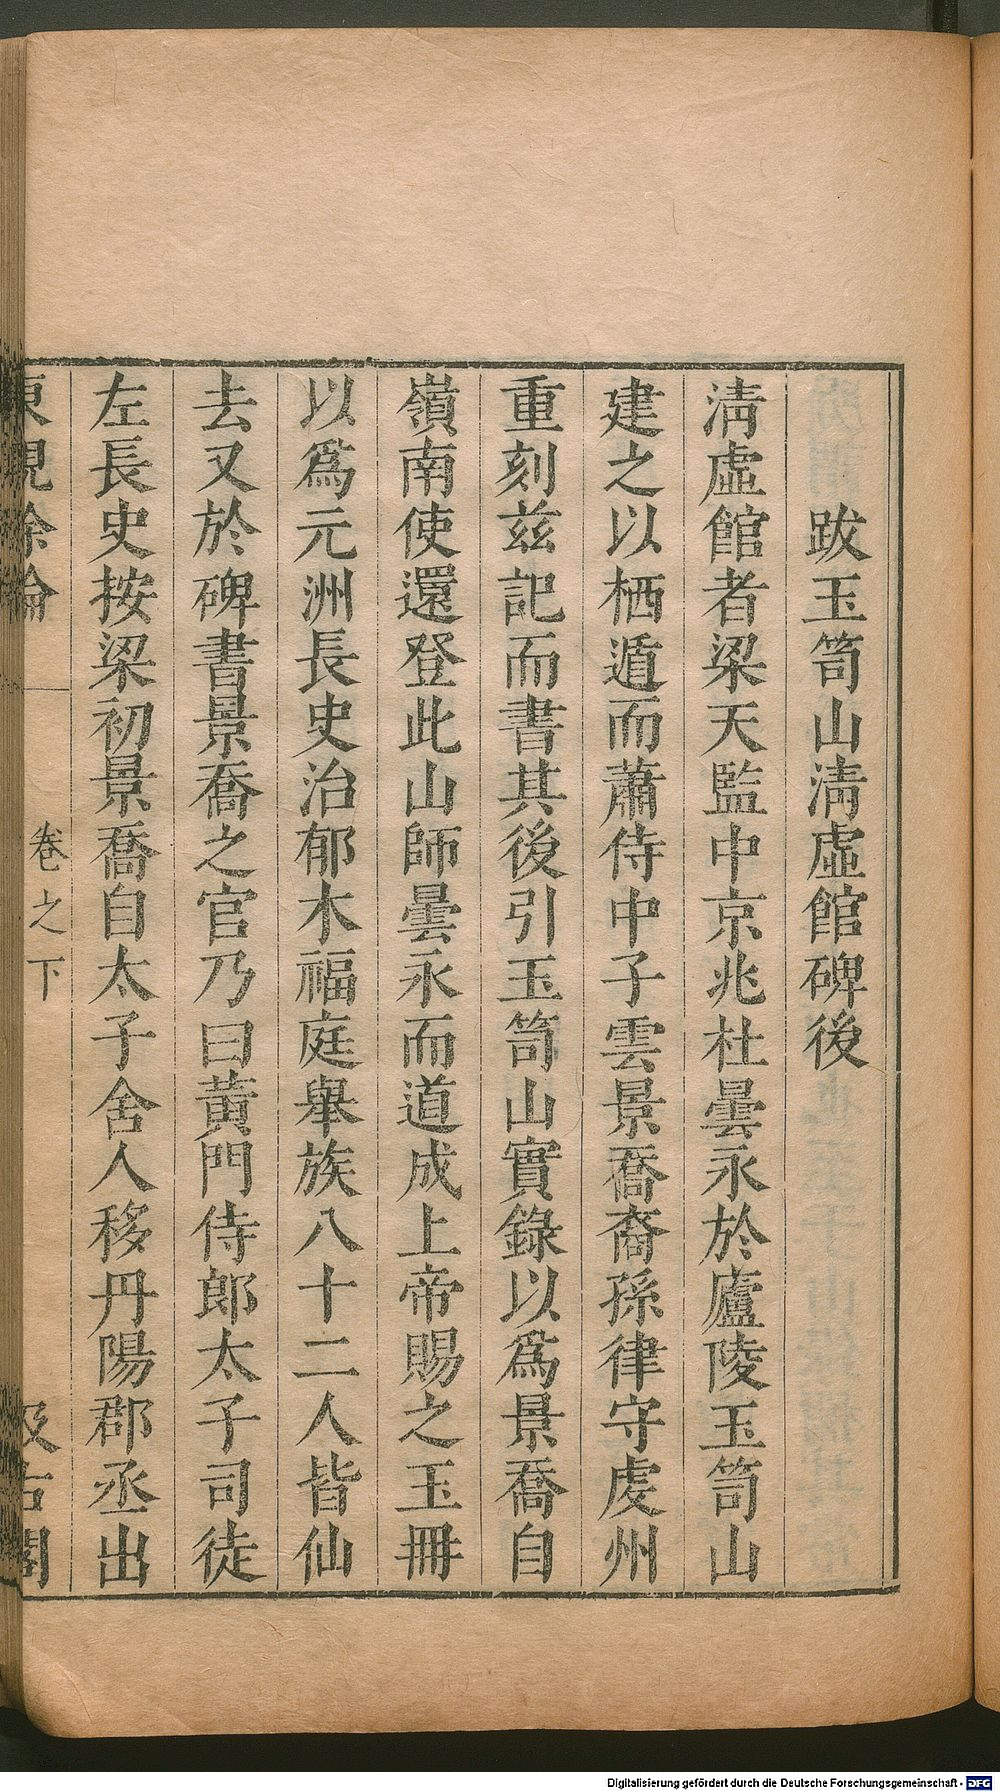 跋玉笥山清虛館碑後
清虛館者梁天監中京兆杜曇永於廬陵玉笥山
建之以栖遁而蕭侍中子雲景喬裔孫律守虔州
重刻茲記而書其後引玉笥山實錄以爲景喬自
嶺南使還登此山師曇永而道成上帝賜之玉冊
以爲元洲長史治郁木福庭舉族八十二人皆仙
去又於碑書景喬之官乃曰黃門侍郎太子司徒
左長史按梁初景喬自太子舍人移丹陽郡丞出
東觀餘論
卷之下
汲古閣
Digitalisierung gefördert durch die Deutsche Forschungsgemeinschaft - DFG